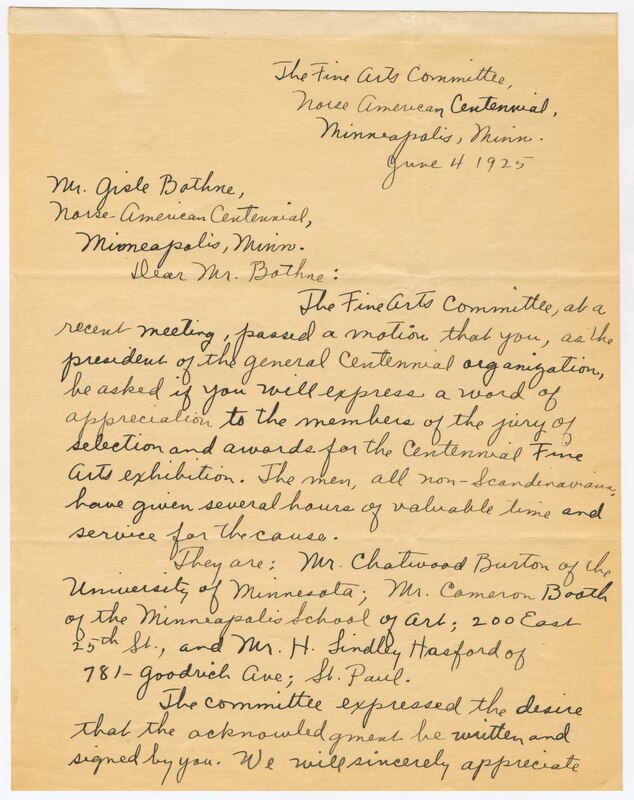 The Fine Arts Committee,
Norse American Centennial,
Minneapolis, Minn.
June 4 1925
Mr. Gisle Bothne,
Norse-American Centennial,
Minneapolis, Minn.
Dear Mr. Bothne:
The Fine Arts Committee, at a
recent meeting, passed a motion that you, as the
president of the general Centennial organization,
be asked if you will express a word of
appreciation to the members of the jury of
selection and awards for the Centennial Fine
Arts exhibition. The men, all non-Scandinavians,
have given several hours of valuable time and
service for the cause.
They are: Mr. Chatwood Burton of the
University of Minnesota; Mr. Cameron Booth
of the Minneapolis School of Art; 200 East
25th St., and Mr. H. Lindley Hosford of
781-Goodrich Ave; St. Paul.
The committee expressed the desire
that the acknowledgment be written and
signed by you. We will sincerely appreciate